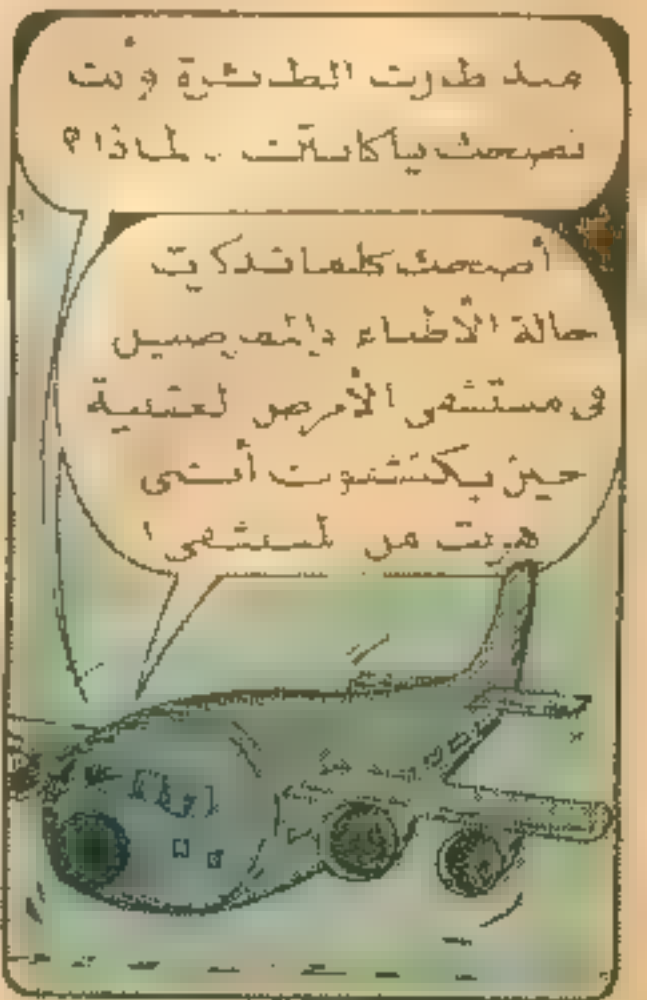 منذ طارت الطائرة وأنت
تضحك يا كابتن .. لماذا ؟
أضحك كلما تذكرت
حالة الأطباء والممرضين
فى مستشفى الأمراض العقلية
حين يكتشفون أننى
هربت من المستشفى !